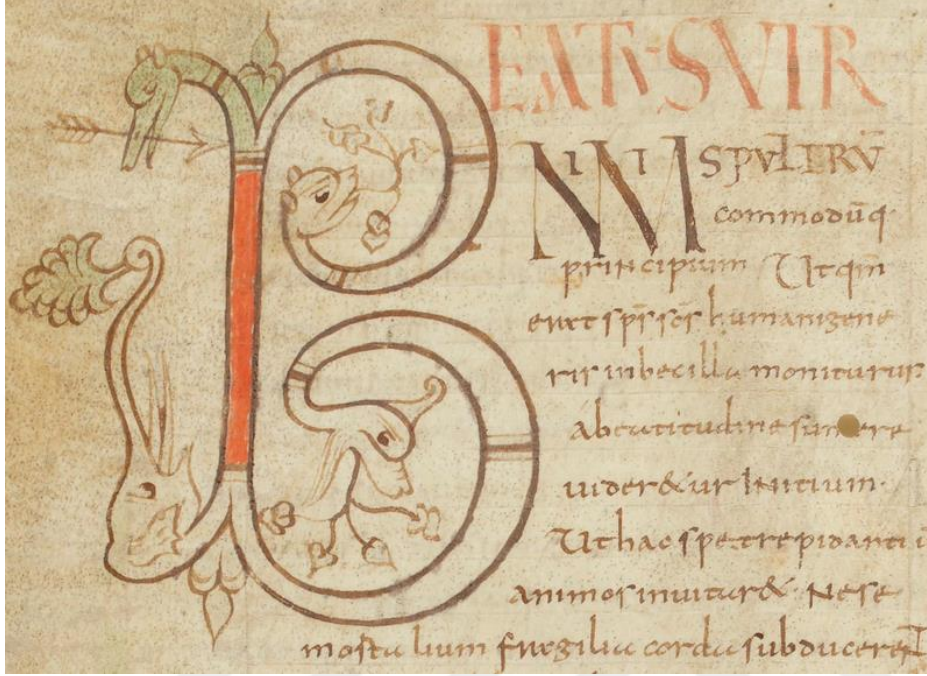 BEATVS VIR
NIMIS PVLTRV̄
commodūq·
principium Ut qm̄
erat sps̄ scs̄ humani gene
ris inbecilla moniturus
a beatitudine sumere
uider&ur Initium·
Ut hac spe trepidanti
animos inuitar& Ne se
mortalium fragilia corda subducere